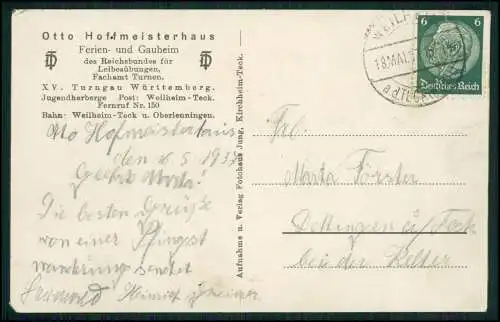 Otto Hoffmeisterhaus
Ferien- und Gauheim
des Reichsbundes für
Leibesübungen,
Fachamt Turnen.
XV. Turngau Württemberg.
Jugendherberge Post: Weilheim-Teck.
Fernruf Nr. 150
Bahn: Weilheim-Teck u. Oberlenningen.
Otto Hofmeisterhaus
den 16.5.1937
Die besten Grüße
von einer Pfingst
wanderung sendet
Heinrich
Aufnahme u. Verlag Fotohaus Jung, Kirchheim-Teck.
WEILHEIM
18.MAI.
a.d.TECK
6 6
Deutsches Reich
Frl.
Marta Förster
Dettingen u/Teck
bei der Kelter